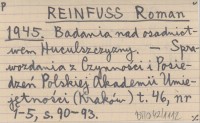 P
REINFUSS Roman
1945. Badania nad osadnict-
wem Huculszczyzny. — Spra-
wozdania z Czynności i Posie-
dzeń Polskiej Akademii Umie-
jętności (Kraków) t. 46, nr
1-5, s. 90-93.